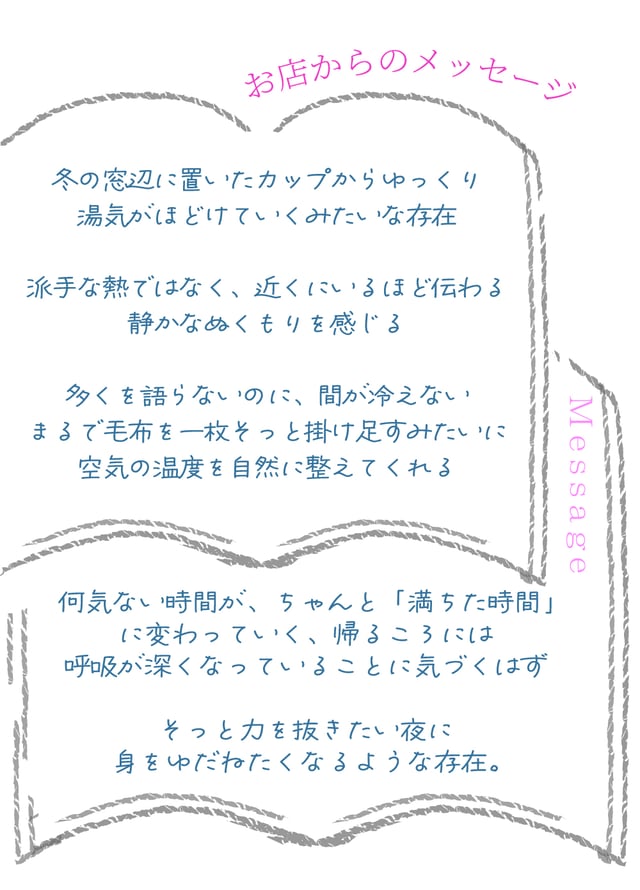 お店からのメッセージ
冬の窓辺に置いたカップからゆっくり
湯気がほどけていくみたいな存在
派手な熱ではなく、近くにいるほど伝わる
静かなぬくもりを感じる
多くを語らないのに、間が冷えない
まるで毛布を一枚そっと掛け足すみたいに
空気の温度を自然に整えてくれる
Message
何気ない時間が、ちゃんと「満ちた時間」
に変わっていく、帰るころには
呼吸が深くなっていることに気づくはず
そっと力を抜きたい夜に
身をゆだねたくなるような存在。